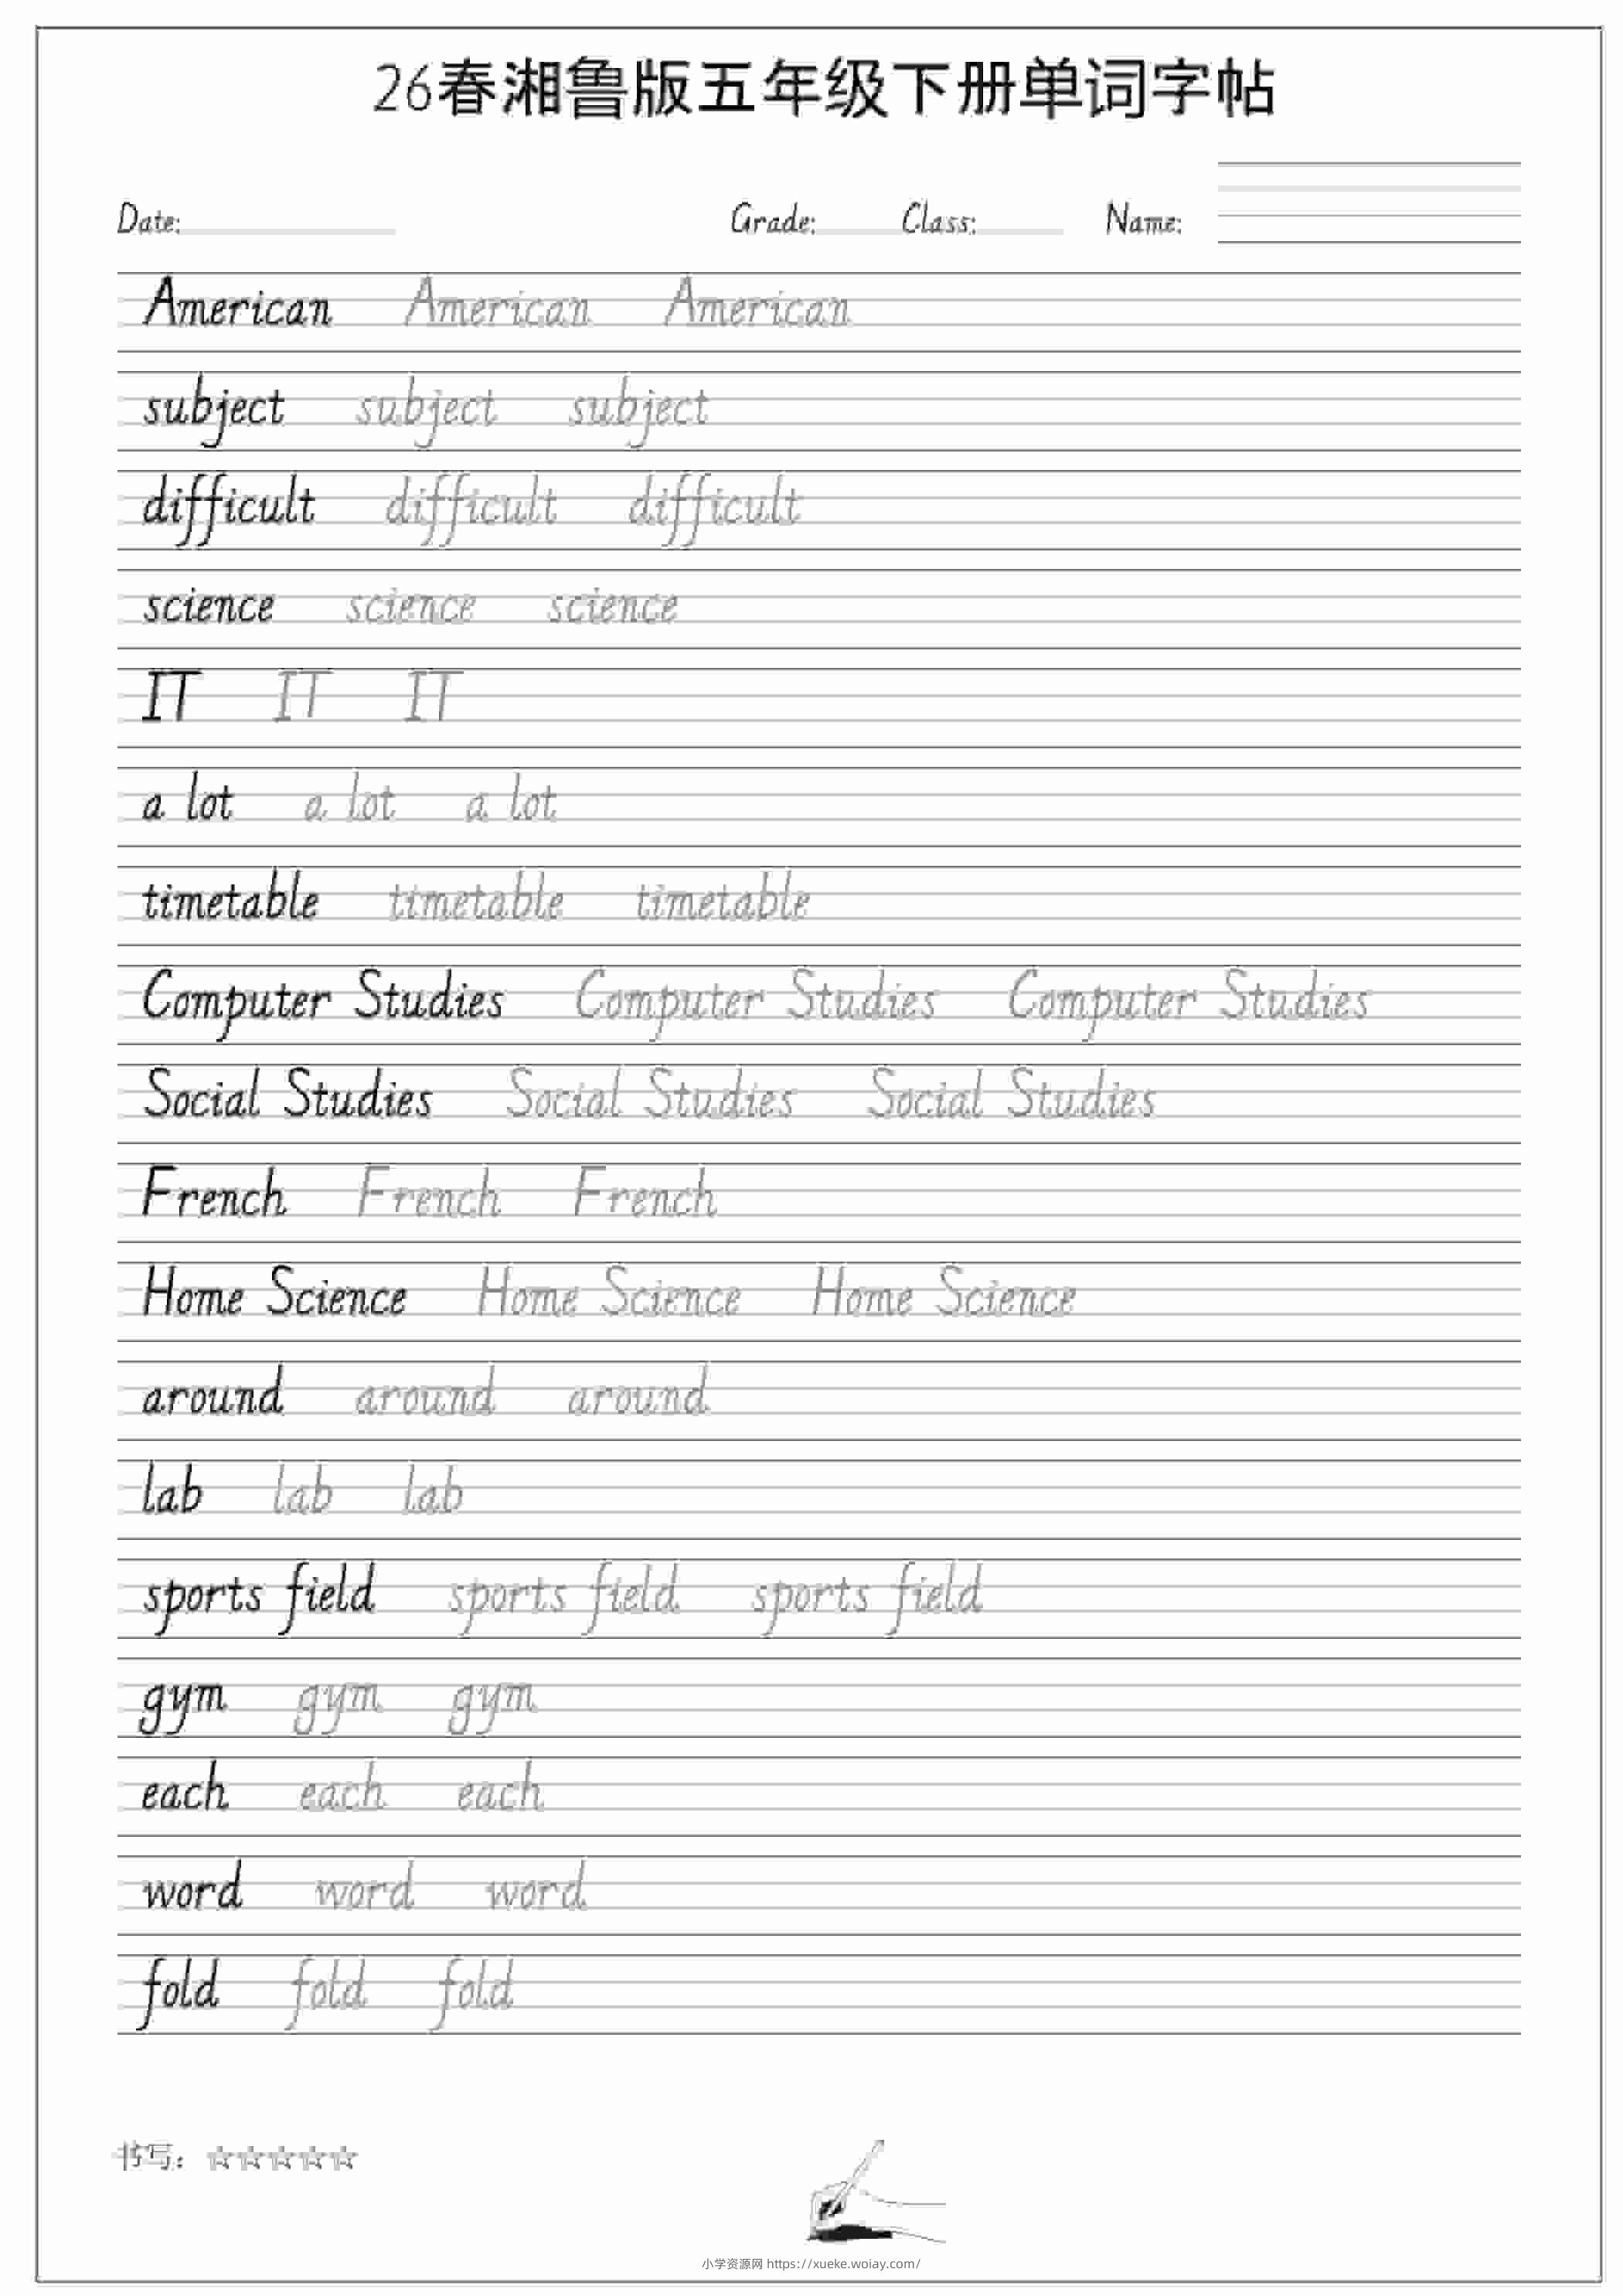 26春湘鲁版五年级下册单词字帖
Date: Grade: Class: Name:
American American American
subject subject subject
difficult difficult difficult
science science science
IT IT IT
a lot a lot a lot
timetable timetable timetable
Computer Studies Computer Studies Computer Studies
Social Studies Social Studies Social Studies
French French French
Home Science Home Science Home Science
around around around
lab lab lab
sports field sports field sports field
gym gym gym
each each each
word word word
fold fold fold
书写：☆☆☆☆☆
小学资源网 https://xueke.woiay.com/